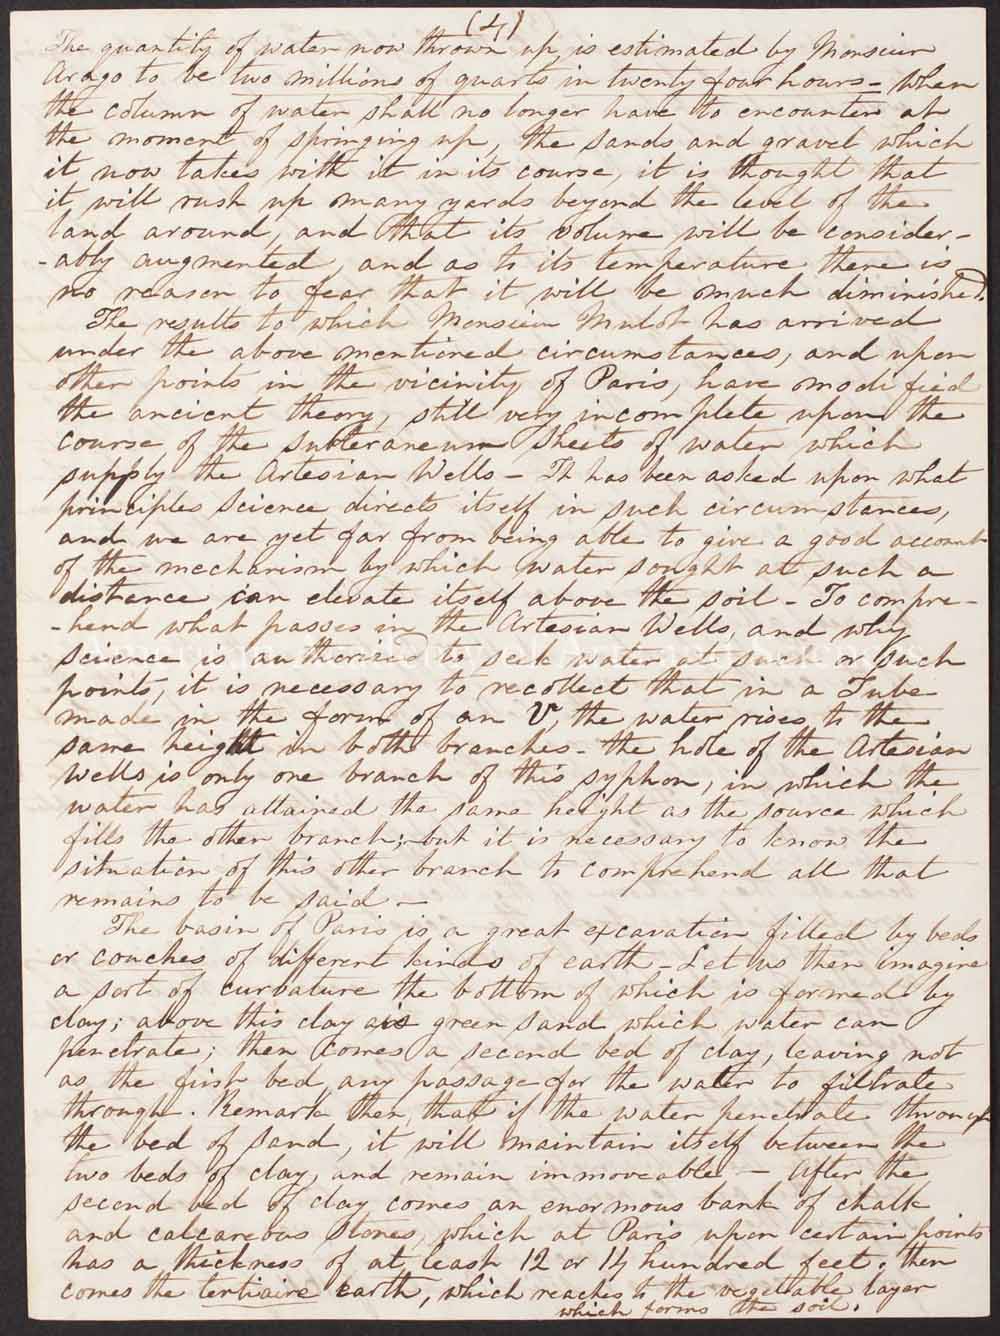 (4)
The quantity of water now thrown up is estimated by Monsieur
Arago to be two millions of quarts in twenty four hours - When
the column of water shall no longer have to encounter at
the moment of springing up, the sands and gravel which
it now takes with it in its course, it is thought that
it will rush up many yards beyond the level of the
land around, and that its volume will be consider-
-ably augmented, and as to its temperature there is
no reason to fear that it will be much diminished.
The results to which Monsieur Mulot has arrived
under the above mentioned circumstances, and upon
other points in the vicinity of Paris, have modified
the ancient theory, still very incomplete upon the
course of the subteraneum sheets of water which
supply the Artesian Wells - It has been asked upon what
principles Science directs itself in such circumstances,
and we are yet far from being able to give a good account
of the mechanism by which water sought at such a
distance can elevate itself above the soil - To compre-
-hend what passes in the Artesian Wells, and why
science is authorized to seek water at such or such
points, it is necessary to recollect that in a Tube
made in the form of an V, the water rises to the
same height in both branches - the hole of the Artesian
Wells is only one branch of this syphon, in which the
water has attained the same height as the source which
fills the other branch; but it is necessary to know the
situation of this other branch to comprehend all that
remains to be said -
The basin of Paris is a great excavation filled by beds
or couches of different kinds of earth - Let us then imagine
a sort of curbature the bottom of which is formed by
clay; above this clay is green sand which water can
penetrate; then comes a second bed of clay, leaving not
as the first bed any passage for the water to filtrate
through. Remark then, that if the water penetrate through
the bed of sand, it will maintain itself between the
two beds of clay, and remain immoveable - After the
second bed of clay comes an enormous bank of chalk
and calcareous stones, which at Paris upon certain points
has a thickness of at least 12 or 14 hundred feet, then
comes the tertiaire earth, which reaches to the vegetable layer
which forms the soil.